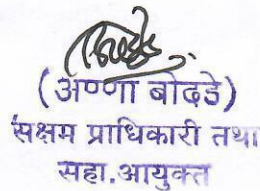 (अण्णा बोदडे)
सक्षम प्राधिकारी तथा
सहा.आयुक्त